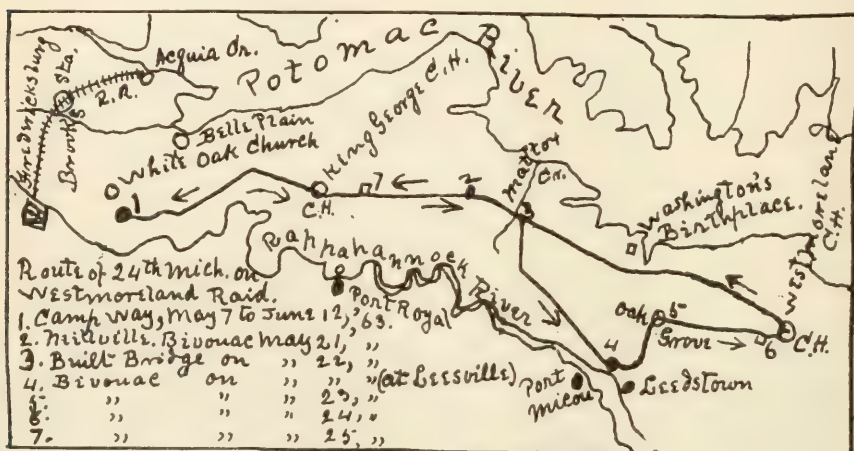 Fredericksburg
Brooks Sta.
R.R.
Acquia Cr.
Potomac River
Belle Plain
White Oak Church
King George C.H.
C.H.
1
7
2
3
Mattox
Cr.
Washington's
Birthplace.
Westmoreland
C.H.
C.H.
Rappahannock River
Port Royal
Oak
Grove
5
6
4
Port
Micou
Leedstown
Route of 24th Mich. on
Westmoreland Raid.
1. Camp Way, May 7 to June 12, '63.
2. Millville. Bivouac May 21, "
3. Built Bridge on " 22, "
4. Bivouac on " " " (at Leesville)
5. " " " 23, "
6. " " " 24, "
7. " " " 25, "